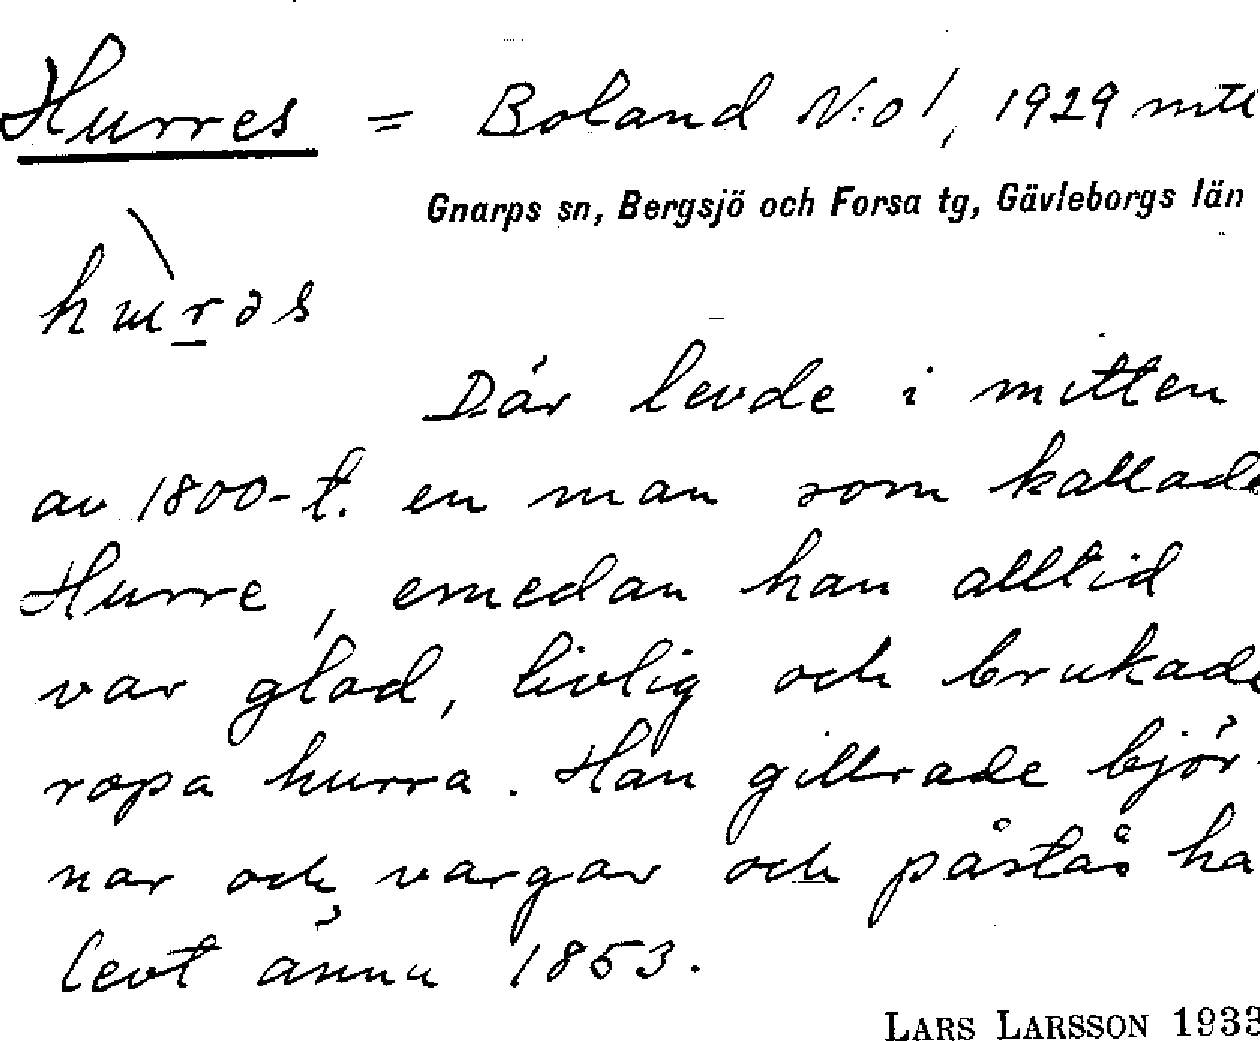 Hurres = Boland N:o 1, 1929 mtl
Gnarps sn, Bergsjö och Forsa tg, Gävleborgs län
Där levde i mitten
av 1800-t. en man som kallade
Hurre, emedan han alltid
var glad, livlig och brukade
ropa hurra. Han gillrade björ-
nar och vargar och påstås ha
levt ännu 1853.
LARS LARSSON 1933